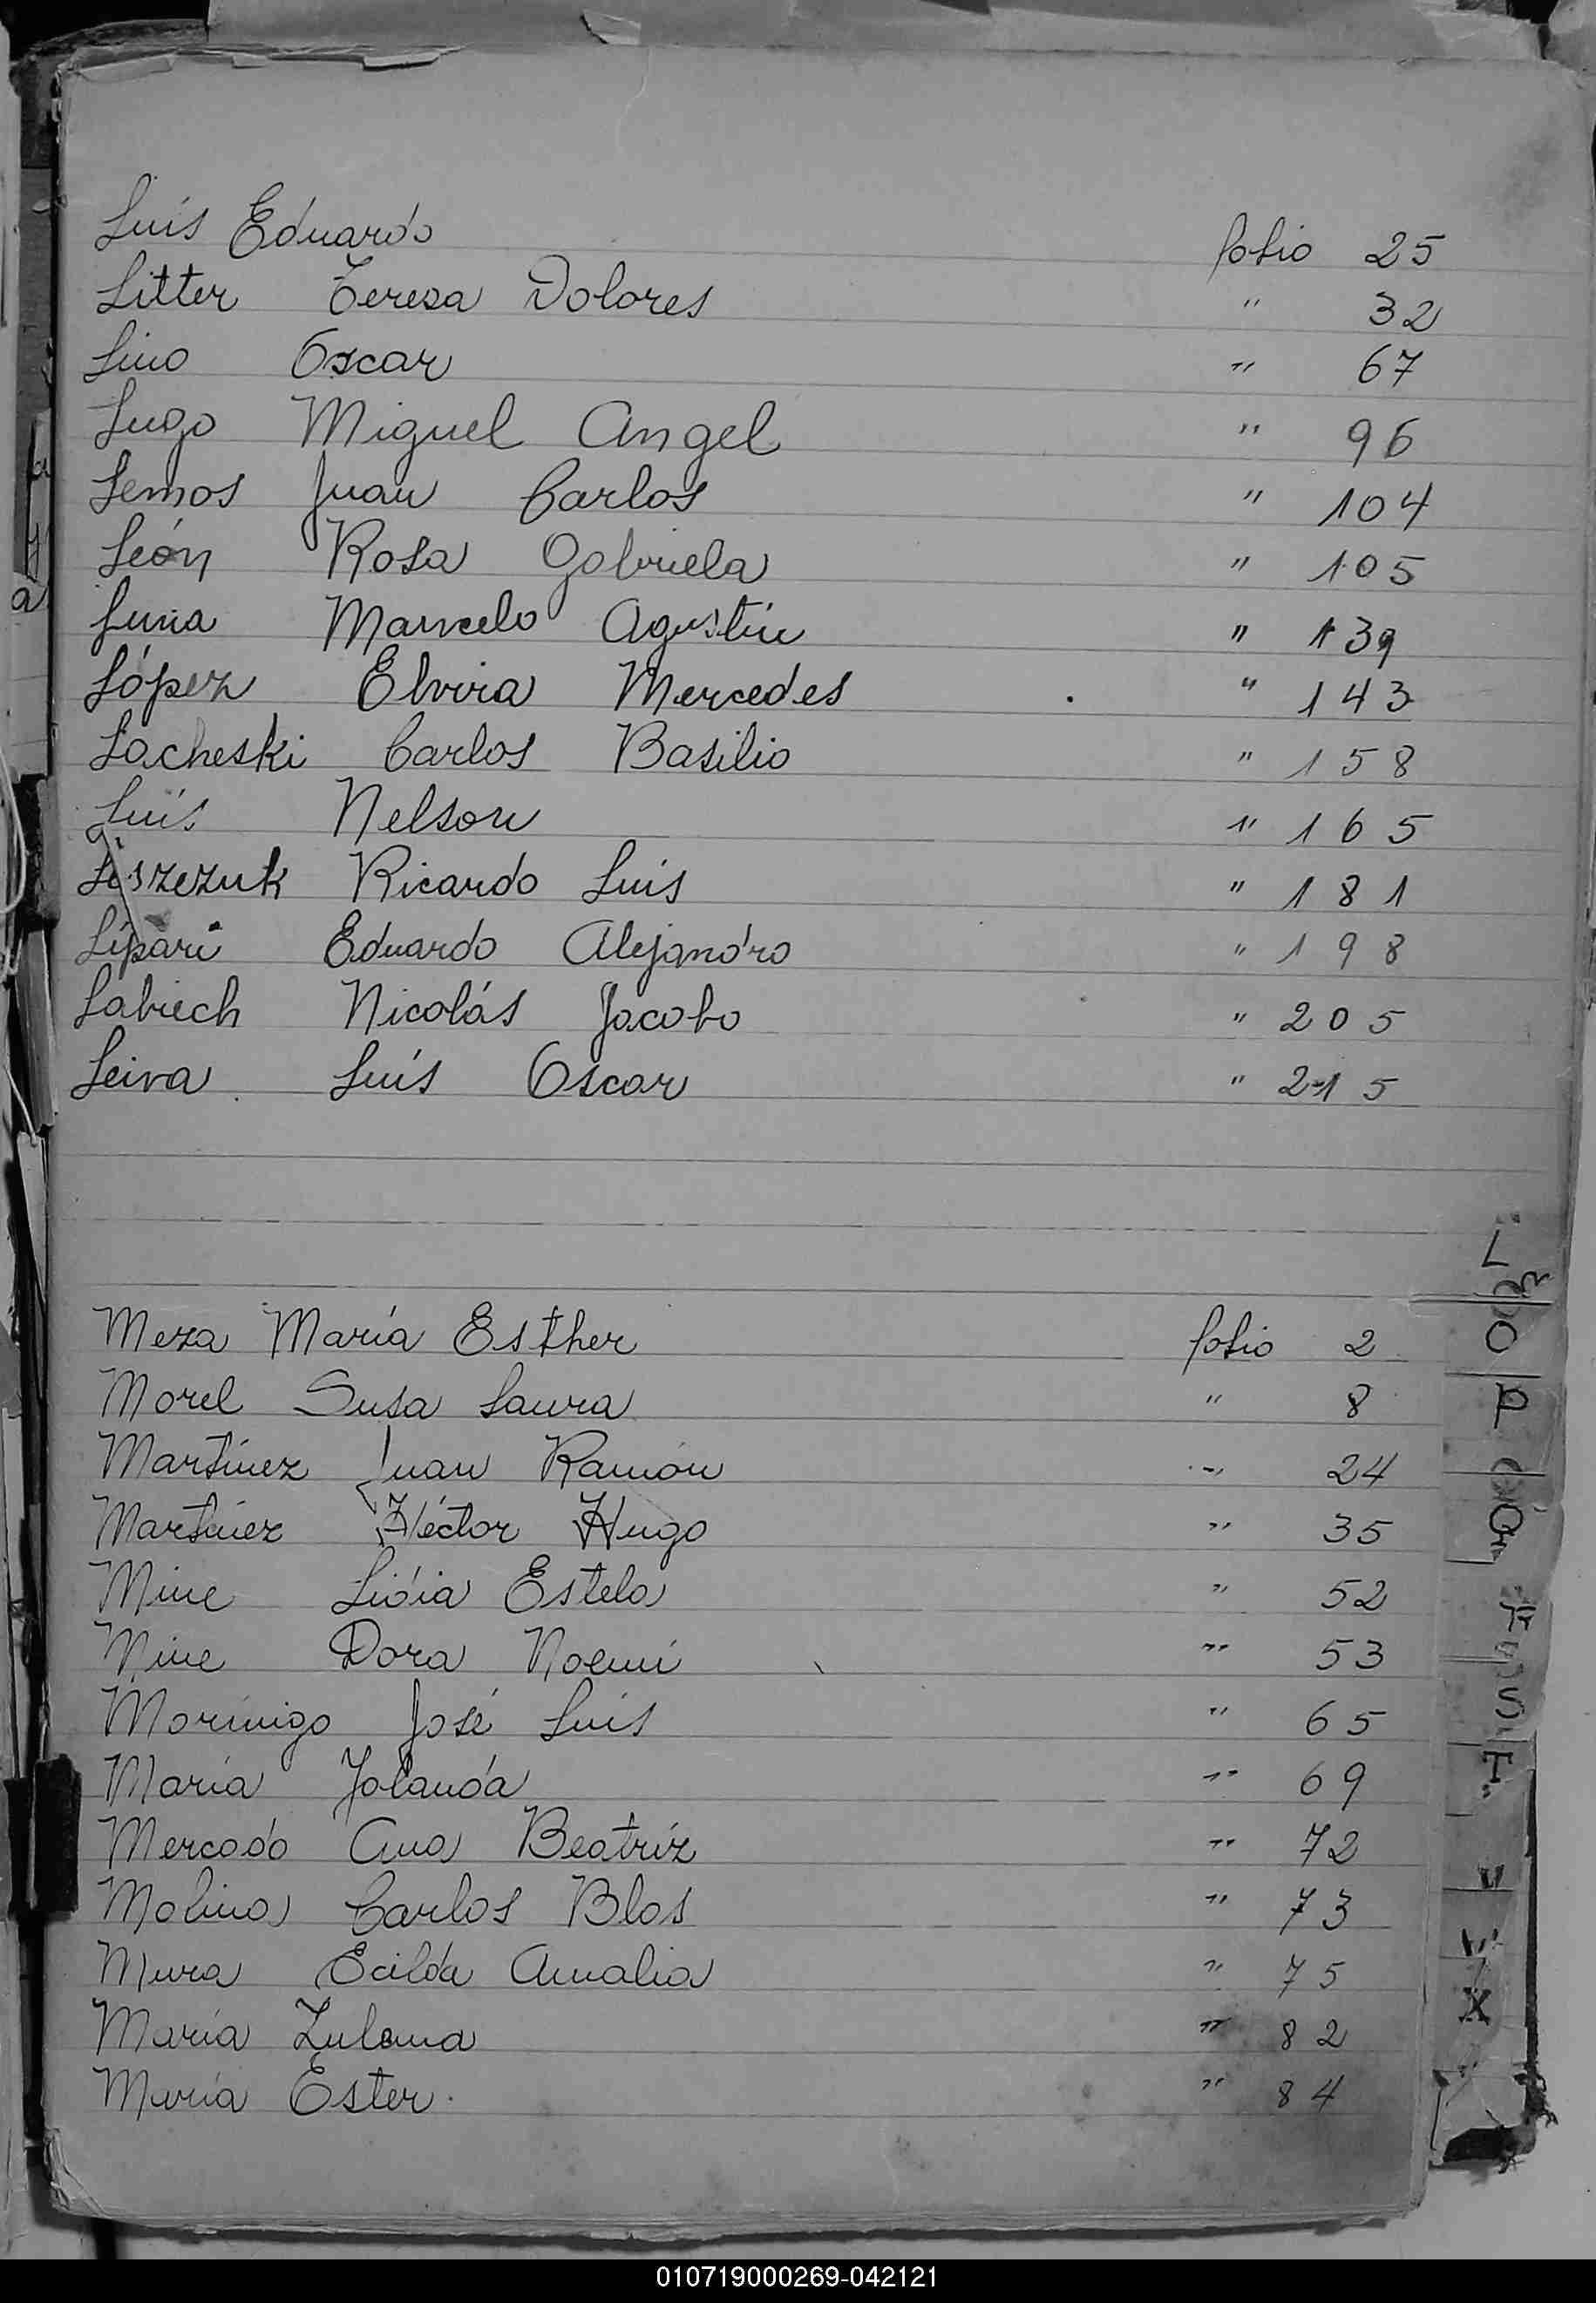 Luis Eduardo folio 25
Litter Teresa Dolores " 32
Lino Oscar " 67
Lugo Miguel Angel " 96
Lemos Juan Carlos " 104
León Rosa Gabriela " 105
Luna Marcelo Agustín " 139
López Elvira Mercedes " 143
Lacheski Carlos Basilio " 158
Luis Nelson " 165
Liszezuk Ricardo Luis " 181
Lipari Eduardo Alejandro " 198
Labiech Nicolás Jacobo " 205
Leiva Luis Oscar " 215
Meza María Esther folio 2
Morel Susa Laura " 8
Martínez Juan Ramón " 24
Martínez Héctor Hugo " 35
Mine Lidia Estela " 52
Mine Dora Noemí " 53
Morínigo José Luis " 65
María Yolanda " 69
Mercado Ana Beatríz " 72
Molina Carlos Blas " 73
Mura Ecilda Amalia " 75
María Zulema " 82
María Ester " 84
L
O
P
Q
S
T
X
010719000269-042121